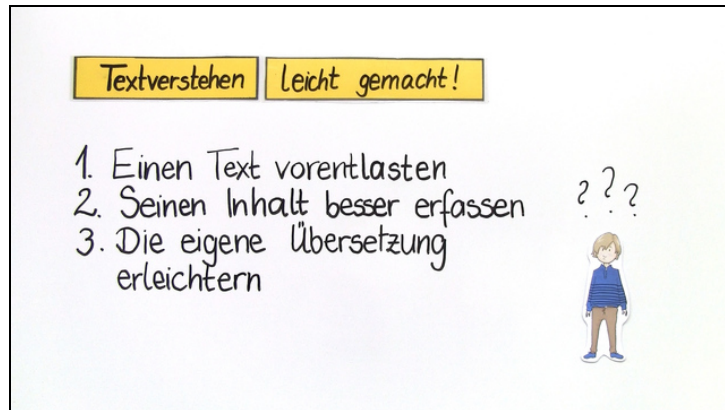 Textverstehen leicht gemacht!
1. Einen Text vorentlasten
2. Seinen Inhalt besser erfassen
3. Die eigene Übersetzung
erleichtern
? ? ?